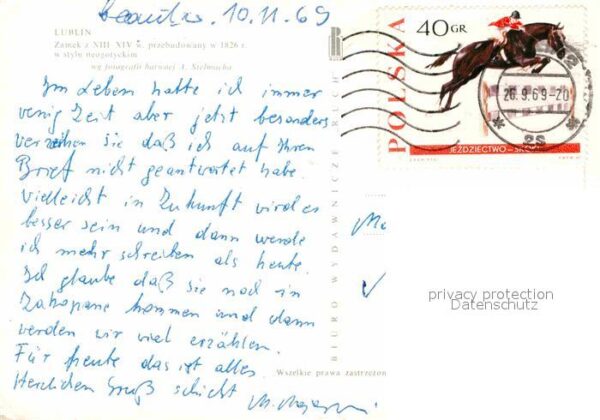 10.11.69
LUBLIN
Zamek z XIII-XIV w. przebudowany w 1826 r.
w stylu neogotyckim
wg fotografii barwnej A. Stelmacha
Im Leben hatte ich immer
wenig Zeit aber jetzt besonders
verzeihen sie daß ich auf Ihren
Brief nicht geantwortet habe.
Vielleicht in Zukunft wird es
besser sein und dann werde
ich mehr schreiben als heute.
Ich glaube daß sie noch in
Zakopane kommen und dann
werden wir viel erzählen.
Für heute das ist alles.
Herzlichen Gruß schickt
BIURO WYDAWNICZE RUCH
Wszelkie prawa zastrzeżon
40 GR
POLSKA
JEŹDZIECTWO-SKOK
26.9.69-20
privacy protection
Datenschutz